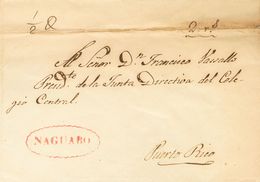 1/2 &
2 rs
Al Señor Dn. Francisco Vassallo
Presdte. de la Junta Directiva del Cole-
gio Central.
NAGUABO
Puerto Rico